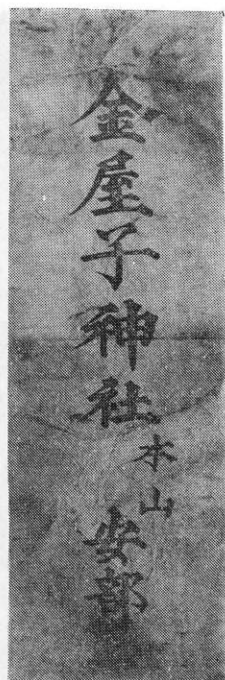 金屋子神社
本山
安部